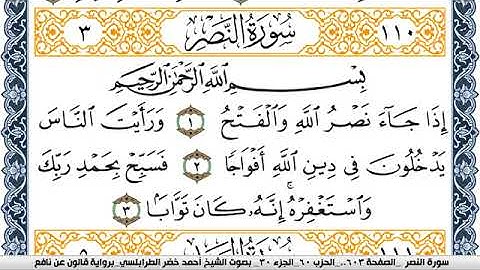 ٣ سُورَةُ النَّصْرِ ١١٠
بِسْمِ اللَّهِ الرَّحْمَٰنِ الرَّحِيمِ
إِذَا جَآءَ نَصْرُ اللَّهِ وَالْفَتْحُ ١ وَرَأَيْتَ النَّاسَ
يَدْخُلُونَ فِي دِينِ اللَّهِ أَفْوَاجًا ٢ فَسَبِّحْ بِحَمْدِ رَبِّكَ
وَاسْتَغْفِرْهُ إِنَّهُ كَانَ تَوَّابًا ٣
١١١
سورة النصر _الصفحة ٦٠٣.._الحزب ٦٠_الجزء ٣٠_ بصوت الشيخ أحمد خضر الطرابلسي_برواية قالون عن نافع